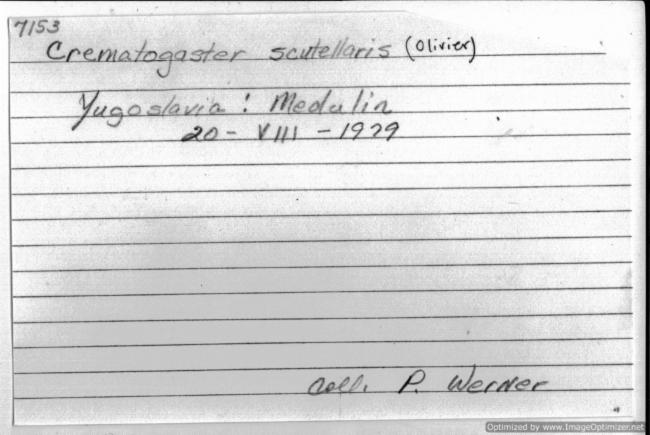 7153
Crematogaster scutellaris (Olivier)
Yugoslavia: Medulin
20 - VIII - 1979
coll. P. Werner
Optimized by www.ImageOptimizer.net